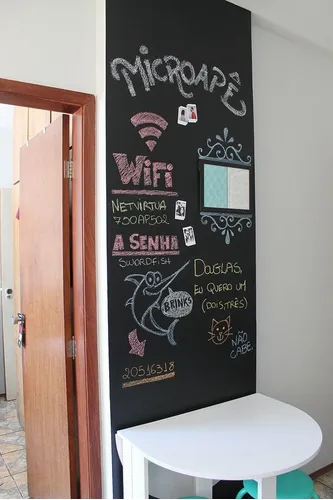 MICROAPÊ
WiFi
NETVIRTUA
730AP502
A SENHA
SWORDFISH
BRINKS
20516318
DOUGLAS,
EU QUERO UM
(DOIS, TRÊS)
NÃO
CABE.